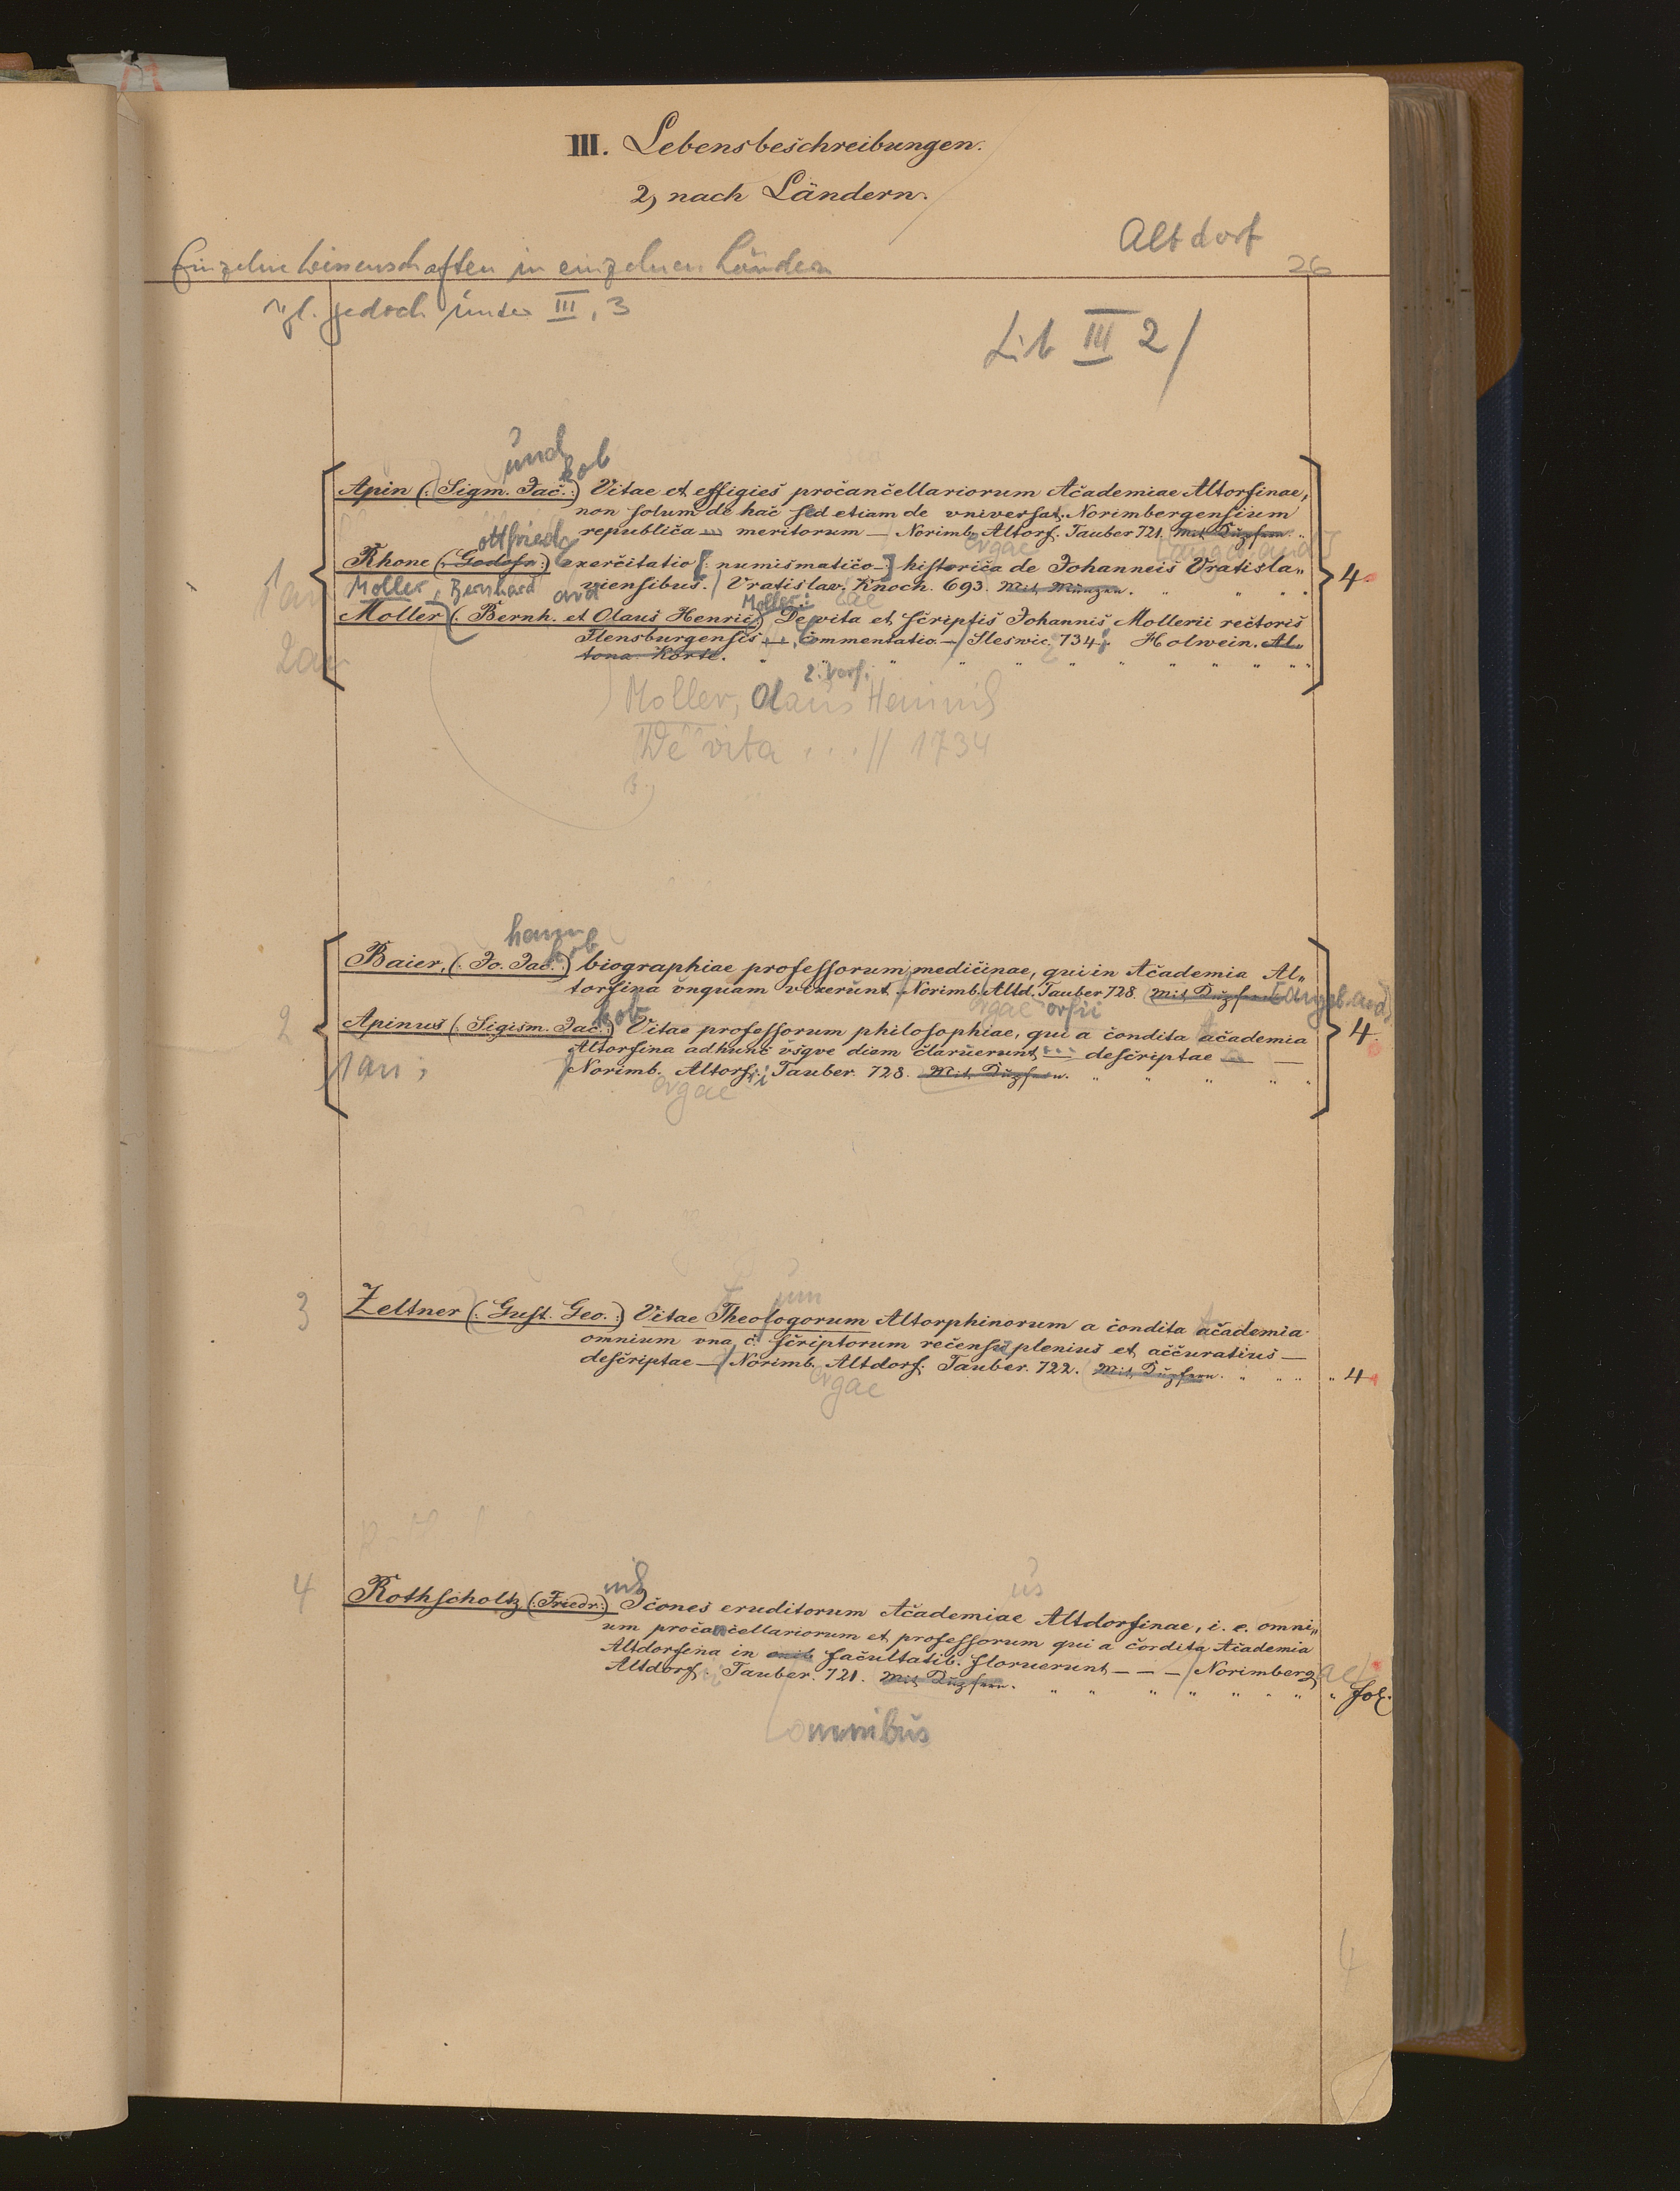 III. Lebensbeschreibungen.
2, nach Ländern.
Altdorf
Einzelne Wissenschaften in einzelnen Ländern
26
vgl. jedoch unter III, 3
Lit III 2/
und
kob
Apin (: Sigm. Jac. :) Vitae et effigies procancellariorum Academiae Altorfinae,
non solum de hac sed etiam de vniversat. Norimbergensium
republica — meritorum — Norimb. Altorf. Tauber 721. Mit Kupfern.
ottfried
orgae
1 an
Rhone (: Godofr. :) exercitatio [: numismatico- :] historica de Johanneis Vratisla„
4.
Moller, Bernhard
viensibus. / Vratislav. Knoch. 693. Mit Münzen.
ard
Moller:
Moller (: Bernh. et Olaus Henric.) De vita et scriptis Johannis Mollerii rectoris
Flensburgensis — Commentatio — / Sleswic. 734. Holwein. Al„
2 an
tona. Korte.
2. Verf.
Moller, Olaus Heinrich
De vita ... // 1734
hann
kob
Baier, (: Jo. Jac. :) biographiae professorum medicinae, qui in Academia Al„
torfina vnquam vixerunt. Norimb. Altd. Tauber 728. Mit Kupfern [angeb. an:]
orgae orfii
kob
2
Apinus (: Sigism. Jac. :) Vitae professorum philosophiae, qui a condita academia
4.
Altorfina adhunc vsqve diem claruerunt — descriptae — —
1 an;
Norimb. Altorf. Tauber. 728. Mit Kupfern.
orgae
um
3
Zeltner (: Gust. Geo. :) Vitae Theologorum Altorphinorum a condita academia
omnium vna c. scriptorum recensu plenius et accuratius —
descriptae — / Norimb. Altdorf. Tauber. 722. Mit Kupfern. „ 4
orgae
rich
us
4
Rothscholtz (: Friedr. :) Icones eruditorum Academiae Altdorfinae, i. e. omni„
um procancellariorum et professorum qui a condita Academia
Altdorfina in omib facultatib. floruerunt — — — / Norimberg ae
Altdorf. Tauber. 721. Mit Kupfern. „ fol.
omnibus
4